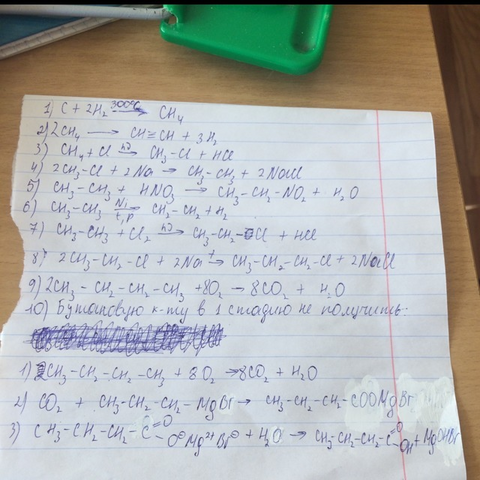 1) C + 2H₂ 300°C → CH₄
2) 2CH₄ → CH≡CH + 3H₂
3) CH₄ + Cl hν → CH₃-Cl + HCl
4) 2CH₃-Cl + 2Na → CH₃-CH₃ + 2NaCl
5) CH₃-CH₃ + HNO₃ → CH₃-CH₂-NO₂ + H₂O
6) CH₃-CH₃ Ni t,p → CH₃-CH₂ + H₂
7) CH₃-CH₃ + Cl₂ hν → CH₃-CH₂-Cl + HCl
8) 2CH₃-CH₂-Cl + 2Na t → CH₃-CH₂-CH₂-Cl + 2NaCl
9) 2CH₃-CH₂-CH₂-CH₃ + 8O₂ → 8CO₂ + H₂O
10) Бутановую к-ту в 1 стадию не получить:
1) 2CH₃-CH₂-CH₂-CH₃ + 8O₂ → 8CO₂ + H₂O
2) CO₂ + CH₃-CH₂-CH₂-MgBr → CH₃-CH₂-CH₂-COOMgBr
3) CH₃-CH₂-CH₂-C=O O⊖Mg²⁺Br⊖ + H₂O → CH₃-CH₂-CH₂-C=O OH + MgOHBr